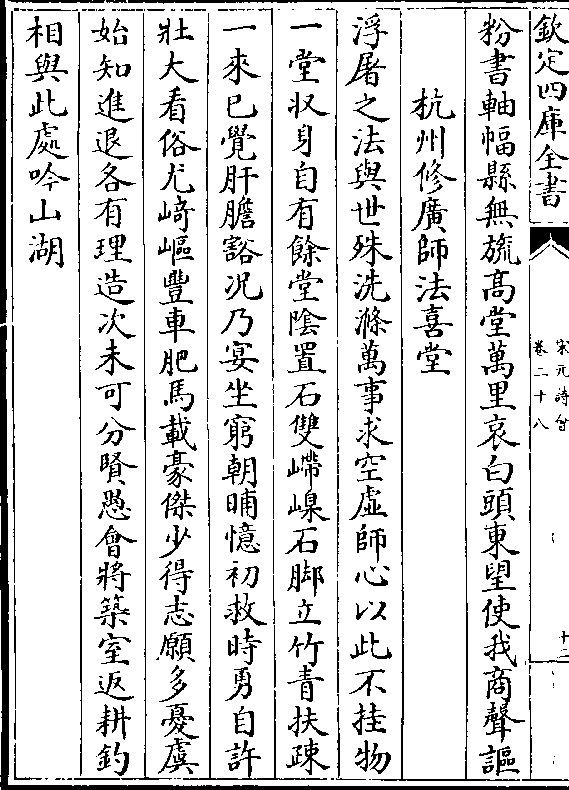 欽定四庫全書
宋元詩會
卷二十八
十二
粉書軸幅縣無旒髙堂萬里哀白頭東望使我商聲謳
杭州修廣師法喜堂
浮屠之法與世殊洗滌萬事求空虛師心以此不挂物
一堂収身自有餘堂隂置石雙嵽嵲石脚立竹青扶疎
一來已覺肝膽豁况乃宴坐窮朝晡憶初救時勇自許
壯大看俗尤﨑嶇豐車肥馬載豪傑少得志願多憂虞
始知進退各有理造次未可分賢愚㑹將築室返耕釣
相與此處吟山湖